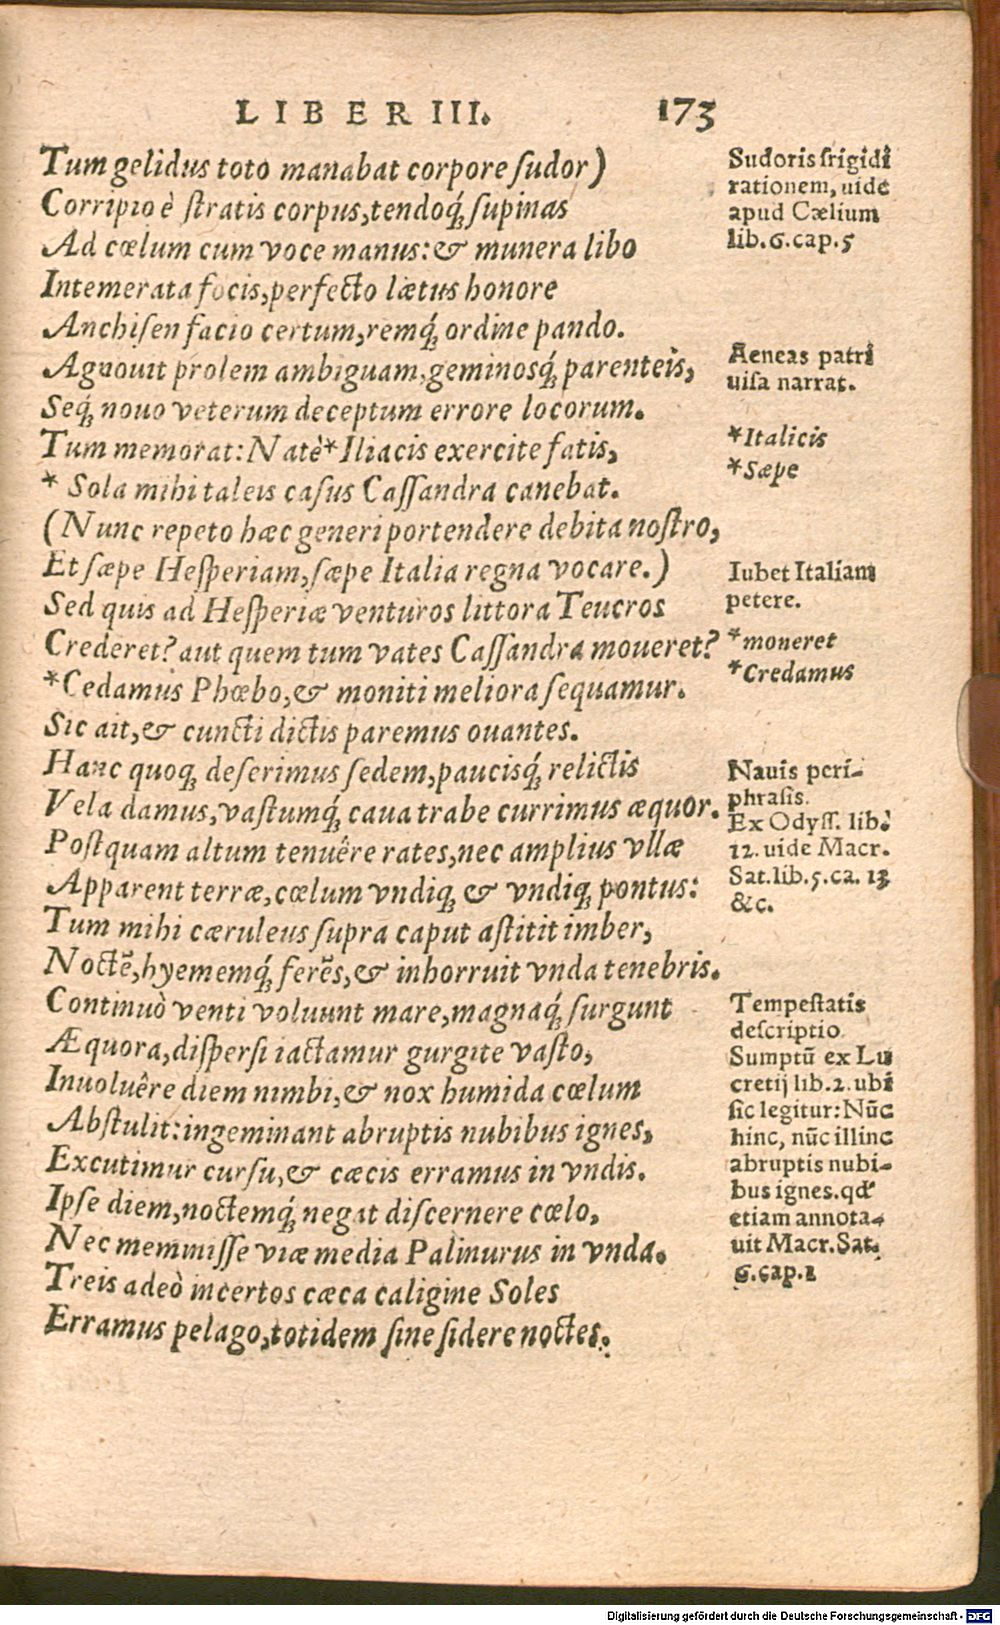 LIBER III. 173
Tum gelidus toto manabat corpore ſudor)
Corripio è ſtratis corpus, tendoq́; ſupinas
Ad cœlum cum voce manus: & munera libo
Intemerata focis, perfecto lætus honore
Anchiſen facio certum, remq́; ordine pando.
Agnouit prolem ambiguam, geminosq́; parenteis,
Seq́; nouo veterum deceptum errore locorum.
Tum memorat: Natè* Iliacis exercite fatis,
* Sola mihi taleis caſus Caſſandra canebat.
(Nunc repeto hæc generi portendere debita noſtro,
Et ſæpe Heſperiam, ſæpe Itala regna vocare.)
Sed quis ad Heſperiæ venturos littora Teucros
Crederet? aut quem tum vates Caſſandra moueret?
*Cedamus Phœbo, & moniti meliora ſequamur.
Sic ait, & cuncti dictis paremus ouantes.
Hanc quoq; deſerimus ſedem, paucisq́; relictis
Vela damus, vaſtumq́; caua trabe currimus æquor.
Poſtquam altum tenuêre rates, nec amplius vllæ
Apparent terræ, cœlum vndiq; & vndiq; pontus:
Tum mihi cæruleus ſupra caput aſtitit imber,
Noctē, hyememq́; ferēs, & inhorruit vnda tenebris.
Continuò venti voluunt mare, magnaq́; ſurgunt
Æquora, diſperſi iactamur gurgite vaſto,
Inuoluêre diem nimbi, & nox humida cœlum
Abſtulit: ingeminant abruptis nubibus ignes,
Excutimur curſu, & cæcis erramus in vndis.
Ipſe diem, noctemq́; negat diſcernere cœlo,
Nec meminiſſe viæ media Palinurus in vnda.
Treis adeò incertos cæca caligine Soles
Erramus pelago, totidem ſine ſidere noctes.
Sudoris frigidi
rationem, uide
apud Cælium
lib. 6. cap. 5
Aeneas patri
uiſa narrat.
*Italicis
*Sæpe
Iubet Italiam
petere.
*moneret
*Credamus
Nauis peri-
phraſis.
Ex Odyſſ. lib.
12. uide Macr.
Sat. lib. 5. ca. 13
&c.
Tempeſtatis
deſcriptio
Sumptū ex Lu
cretij lib. 2. ubi
ſic legitur: Nūc
hinc, nūc illinc
abruptis nubi-
bus ignes. qd'
etiam annota-
uit Macr. Sat.
6. cap. 1
Digitalisierung gefördert durch die Deutsche Forschungsgemeinschaft - DFG